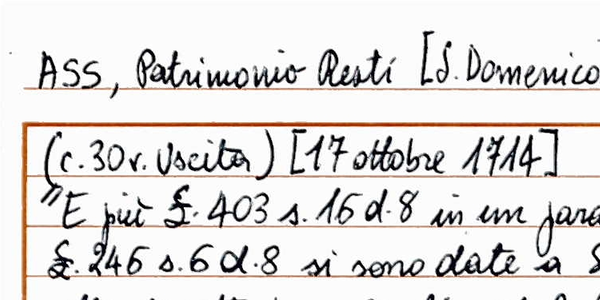 ASS, Patrimonio Resti [S. Domenico
(c. 30v. Uscita) [17 ottobre 1714]
"E più £. 403 s. 16 d. 8 in un
£. 246 s. 6 d. 8 si sono date a S